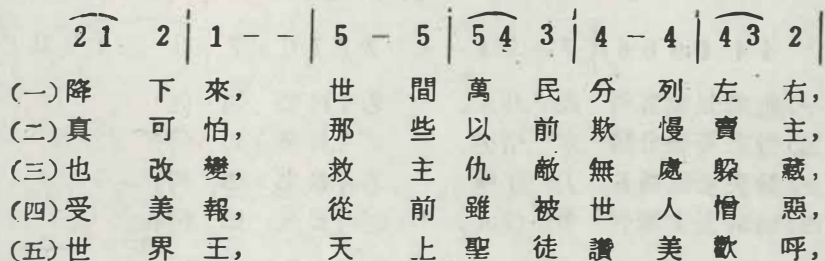 2 1 2 | 1 - - | 5 - 5 | 5 4 3 | 4 - 4 | 4 3 2 |
(一)降下來，世間萬民分列左右，
(二)真可怕，那些以前欺慢賣主，
(三)也改變，救主仇敵無處躲藏，
(四)受美報，從前雖被世人憎惡，
(五)世界王，天上聖徒讚美歡呼，